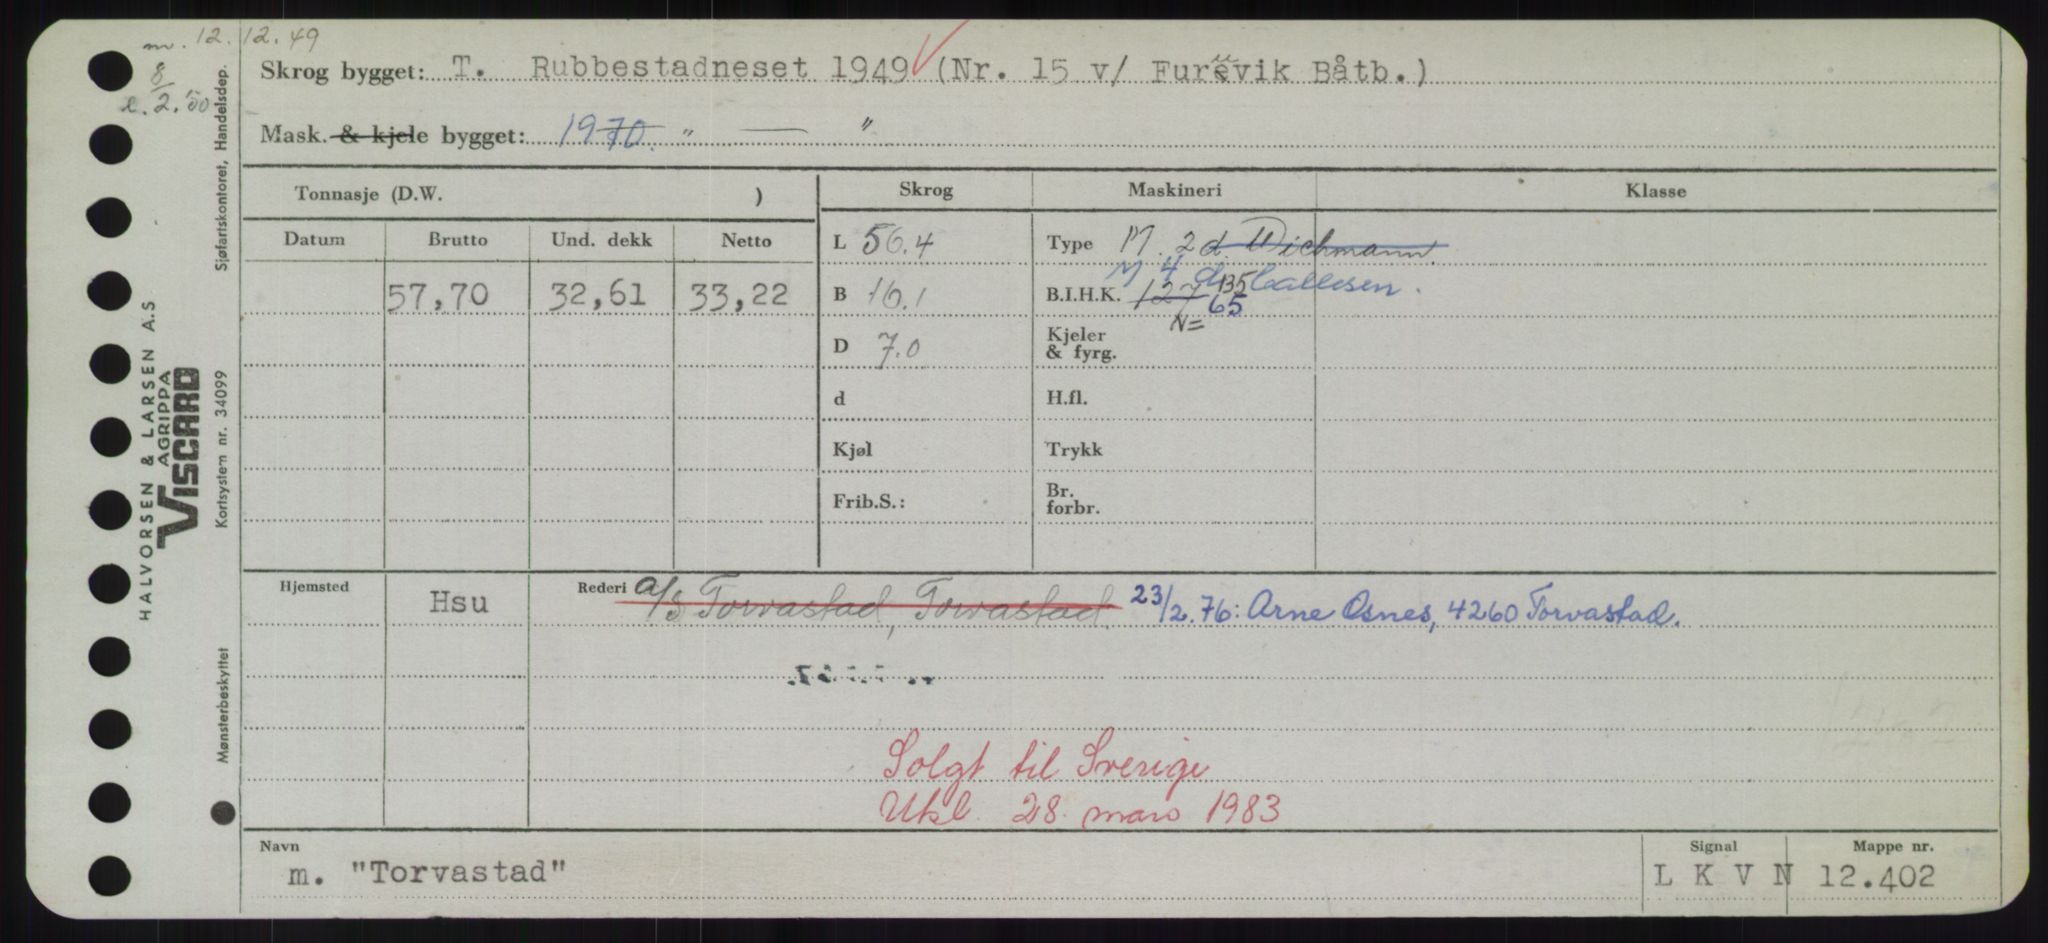 m. 12.12.49
8/2.'50
Skrog bygget: T. Rubbestadneset 1949 (Nr. 15 v/ Furevik Båtb.)
Mask. & kjele bygget: 1970. " — "
Tonnasje (D.W. )
Skrog
Maskineri
Klasse
Datum
Brutto
Und. dekk
Netto
57,70
32,61
33,22
L 56.4
B 16.1
D 7.0
d
Kjøl
Frib.S.:
Type M. 2 d. Wichmann.
M 4 d. Callesen.
B.I.H.K. 127 135
N= 65
Kjeler & fyrg.
H.fl.
Trykk
Br. forbr.
Hjemsted
Hsu
Rederi a/s Torvastad, Torvastad. 23/2.76: Arne Osnes, 4260 Torvastad.
Solgt til Sverige
Utkl. 28. mars 1983
Navn
m. "Torvastad"
Signal
L K V N
Mappe nr.
12.402
HALVORSEN & LARSEN A.S
AGRIPPA
VISCARD
Sjøfartskontoret, Handelsdep.
Kortsystem nr. 34099
Mønsterbeskyttet